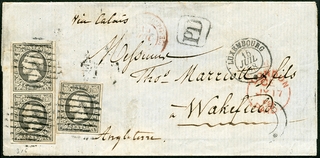 via Calais
PD
LUXEMBOURG
JUIL
Messieurs
Thos. Marriott & fils
à Wakefield
Angleterre